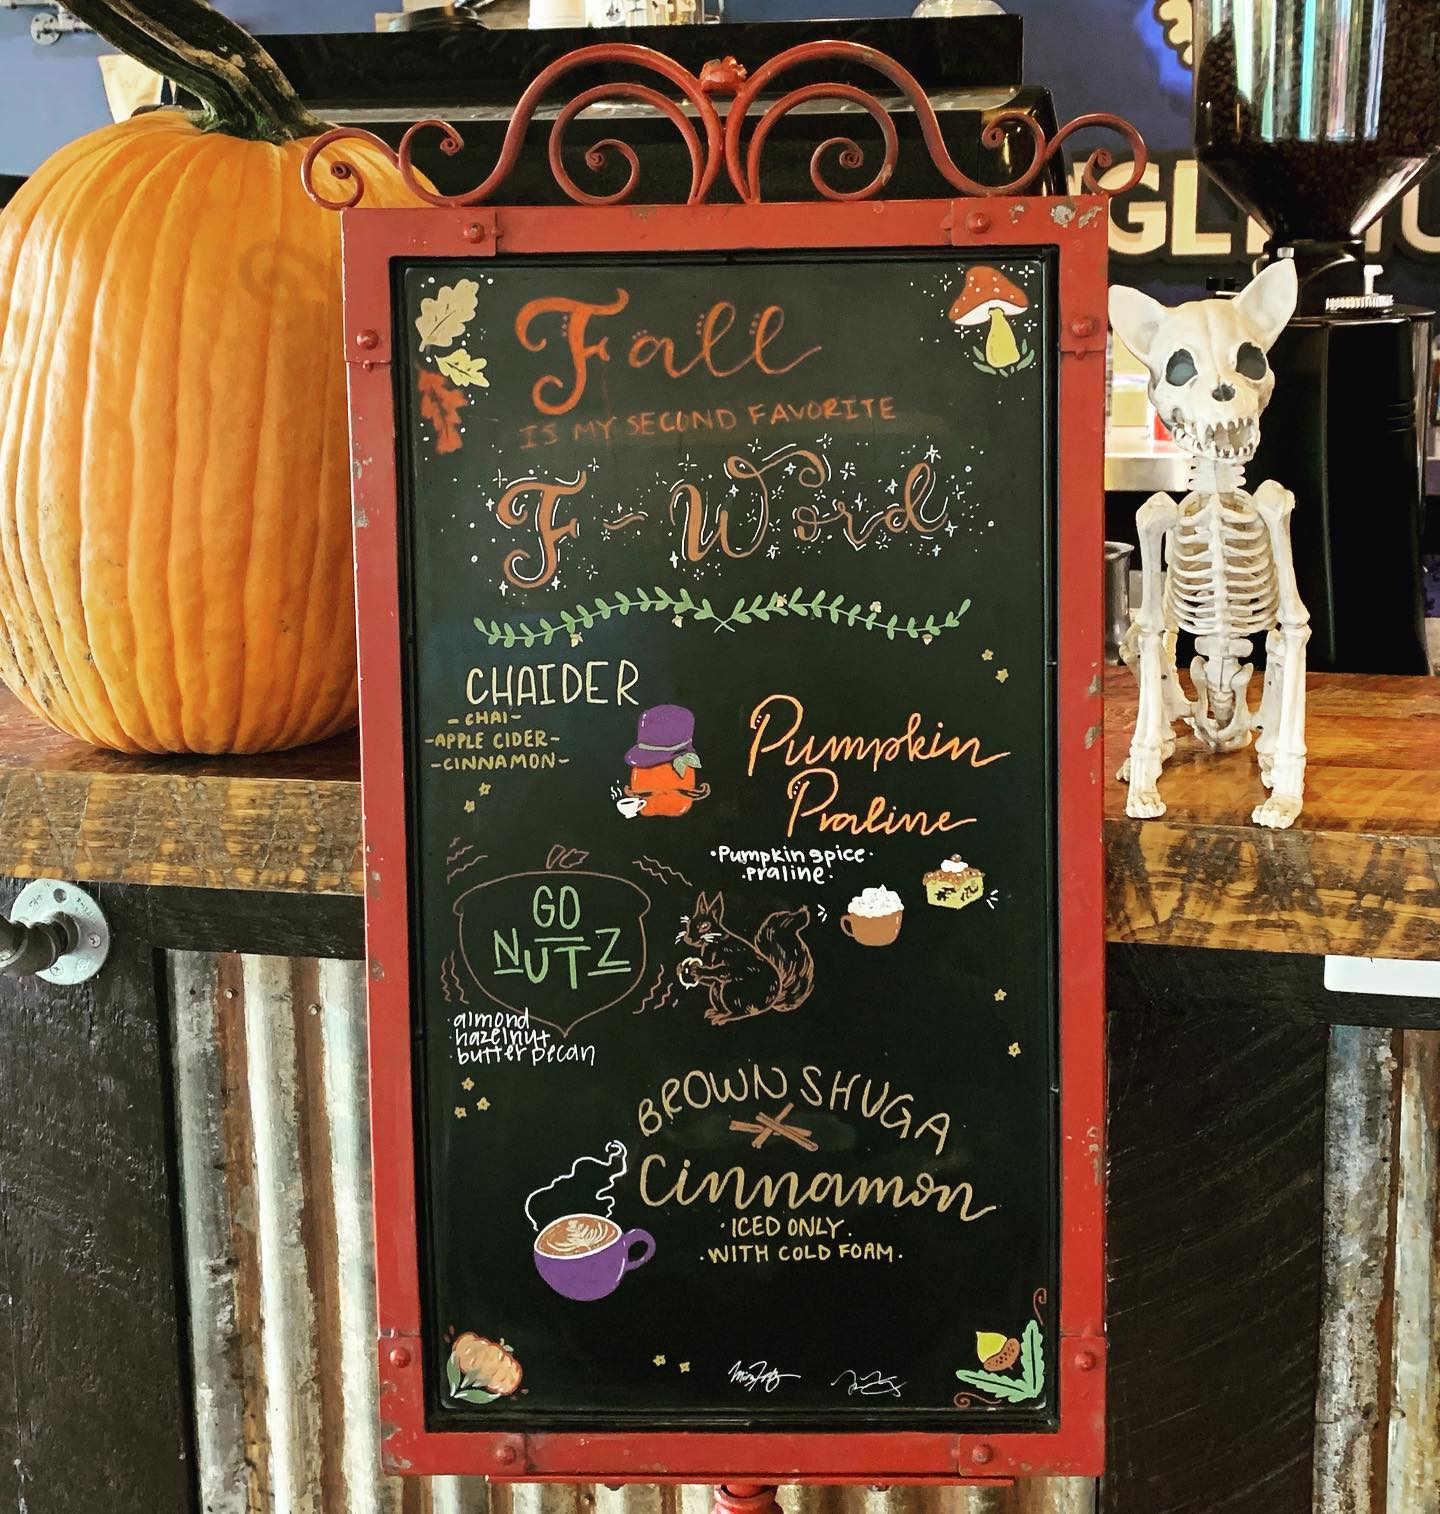 Fall
IS MY SECOND FAVORITE
F-Word
CHAIDER
-CHAI-
-APPLE CIDER-
-CINNAMON-
Pumpkin
Praline
·Pumpkin spice·
·praline·
GO
NUTZ
·almond
·hazelnut
·butter pecan
BROWN SHUGA
Cinnamon
·ICED ONLY·
·WITH COLD FOAM·